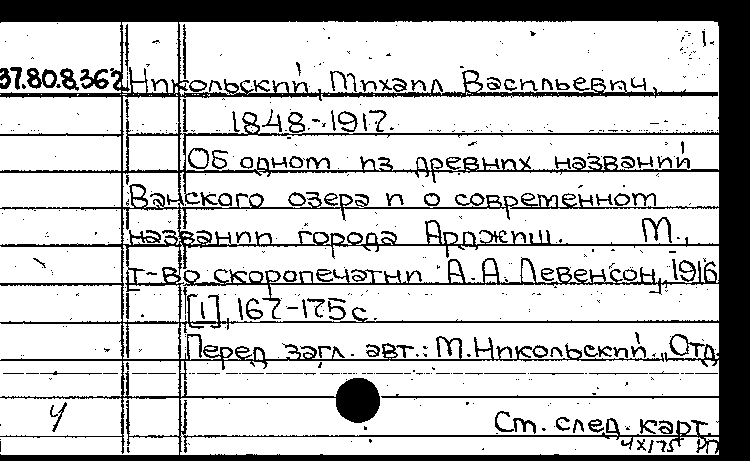 1.
37.80.8.362 Никольский, Михаил Васильевич,
1848-1917.
Об одном из древних названий
Ванского озера и о современном
названии города Арджиш. М.,
т-во скоропечатни А.А. Левенсон, 1916
[1], 167-175 с.
Перед загл. авт.: М.Никольский. „Отд.
Ч
См. след. карт.
4x175 РП